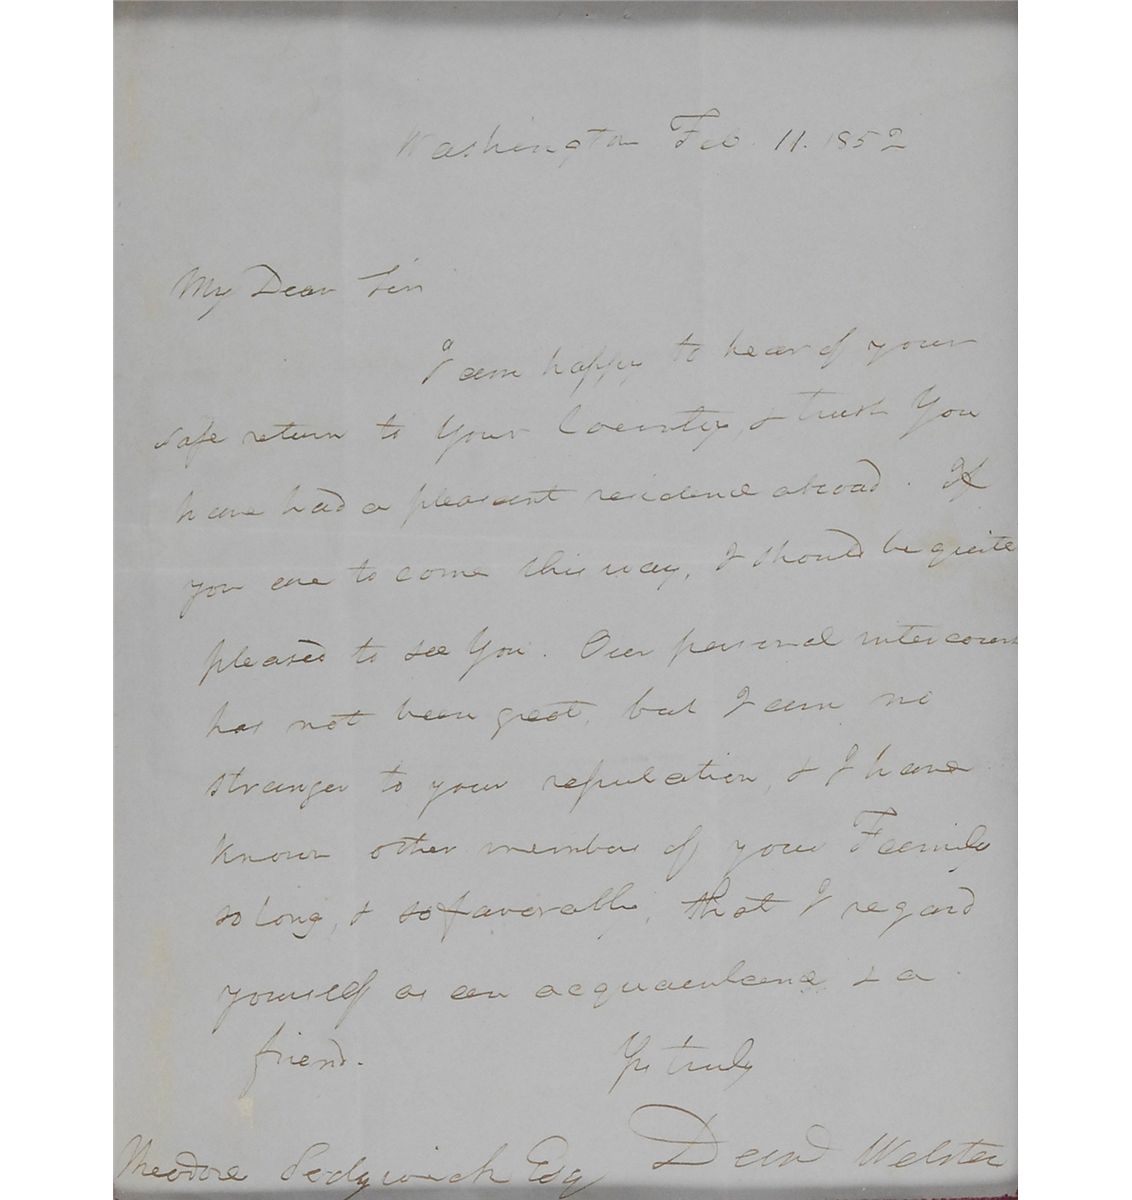 Washington Feb. 11. 1852
My Dear Sir
I am happy to hear of your
safe return to Your Country, & trust You
have had a pleasant residence abroad. If
you are to come this way, I should be quite
pleased to see You. Our personal intercourse
has not been great, but I am no
stranger to your reputation, & I have
known other members of your Family
so long, & so favorably, that I regard
yourself as an acquaintance & a
friend.
Yrs truly
Danl Webster
Theodore Sedgwick Esq